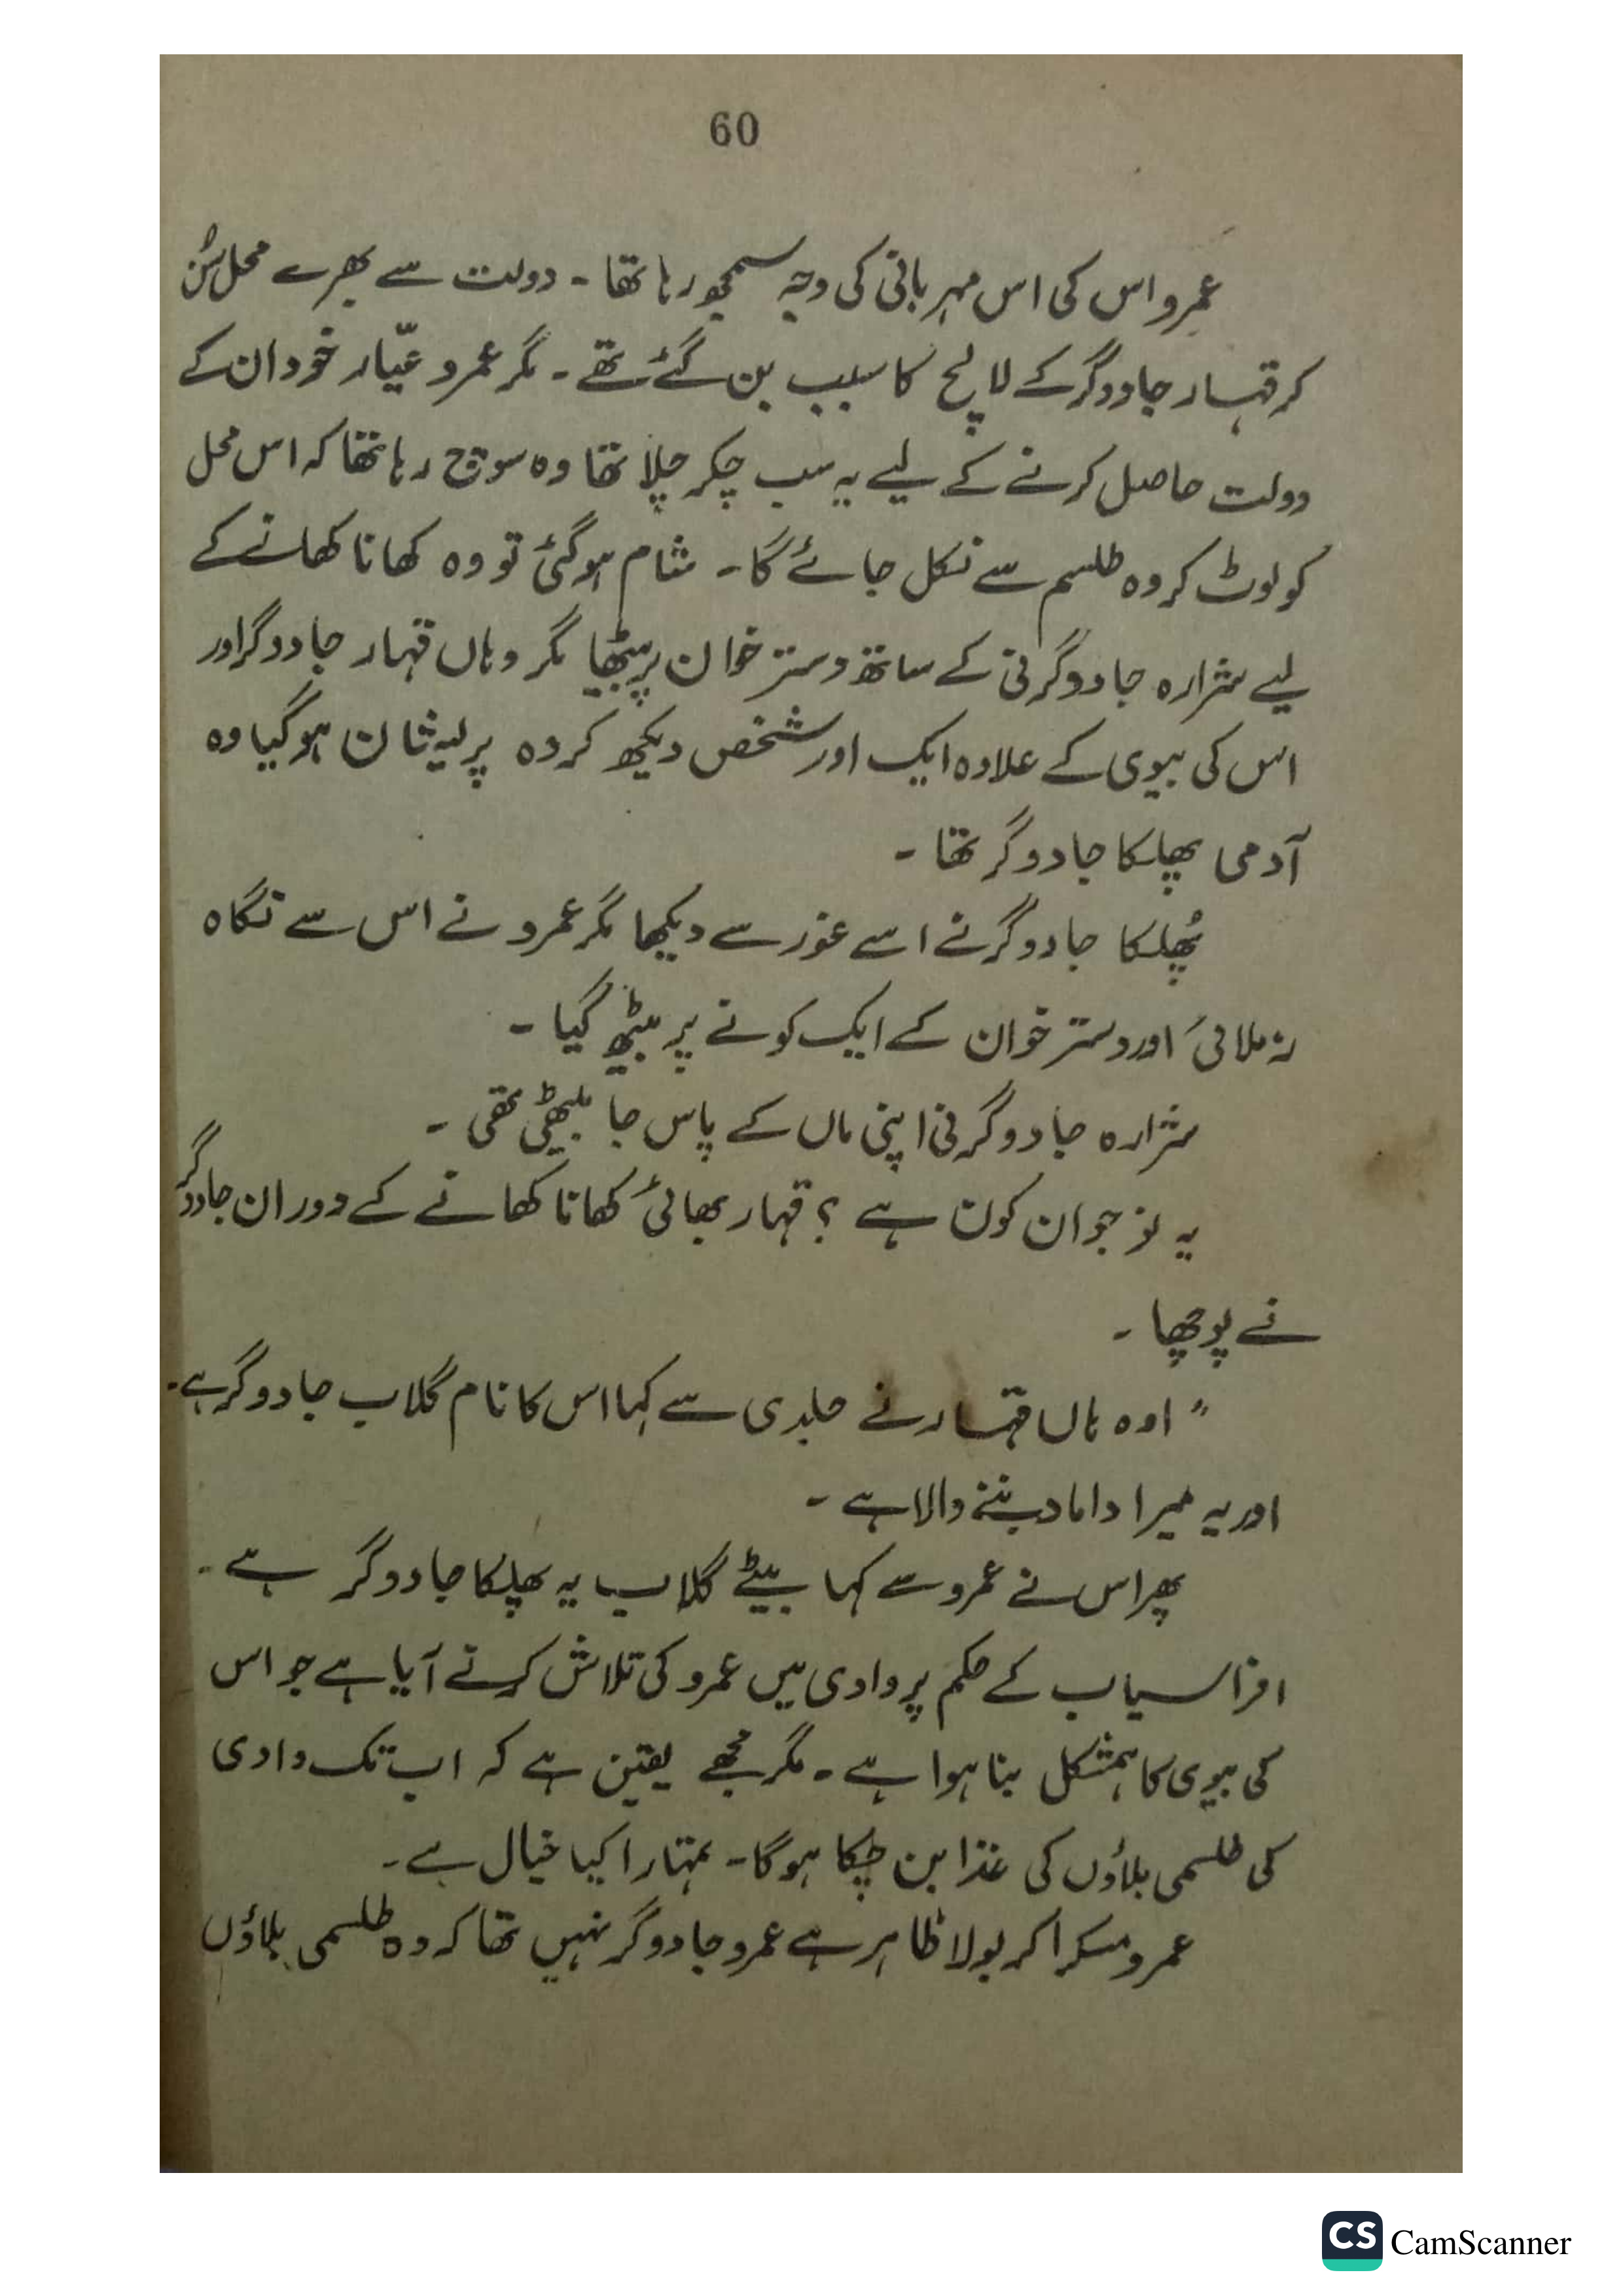 60
عمرو اس کی اس مہربانی کی وجہ سمجھ رہا تھا ۔ دولت سے بھرے محل سُن
کر قہار جادوگر کے لالچ کا سبب بن گئے تھے ۔ مگر عمرو عیّار خود ان کے
دولت حاصل کرنے کے لیے یہ سب چکر چلا تھا وہ سوچ رہا تھا کہ اس محل
کو لوٹ کر وہ طلسم سے نکل جائے گا ۔ شام ہو گئی تو وہ کھانا کھانے کے
لیے شرارہ جادوگرنی کے ساتھ دستر خوان پر بیٹھا مگر وہاں قہار جادوگر اور
اس کی بیوی کے علاوہ ایک اور شخص دیکھ کر وہ پریشان ہو گیا وہ
آدمی پھلکا جادوگر تھا ۔
پُھلکا جادوگر نے اسے غور سے دیکھا مگر عمرو نے اس سے نگاہ
نہ ملائی اور دستر خوان کے ایک کونے پر بیٹھ گیا ۔
شرارہ جادوگرنی اپنی ماں کے پاس جا بیٹھی تھی ۔
یہ نوجوان کون ہے ؟ قہار بھائی کھانا کھانے کے دوران جادوگر
نے پوچھا ۔
" اوہ ہاں قہار نے جلدی سے کہا اس کا نام گلاب جادوگر ہے ۔
اور یہ میرا داماد بننے والا ہے ۔
پھر اس نے عمرو سے کہا بیٹے گلاب یہ پھلکا جادوگر ہے ۔
افراسیاب کے حکم پر وادی میں عمرو کی تلاش کرنے آیا ہے جو اس
کی بیوی کا ہمشکل بنا ہوا ہے ۔ مگر مجھے یقین ہے کہ اب تک وادی
کی طلسمی بلاؤں کی غذا بن چکا ہوگا ۔ تمہارا کیا خیال ہے ۔
عمرو مسکرا کر بولا ظاہر ہے عمرو جادوگر نہیں تھا کہ وہ طلسمی بلاؤں
CS CamScanner